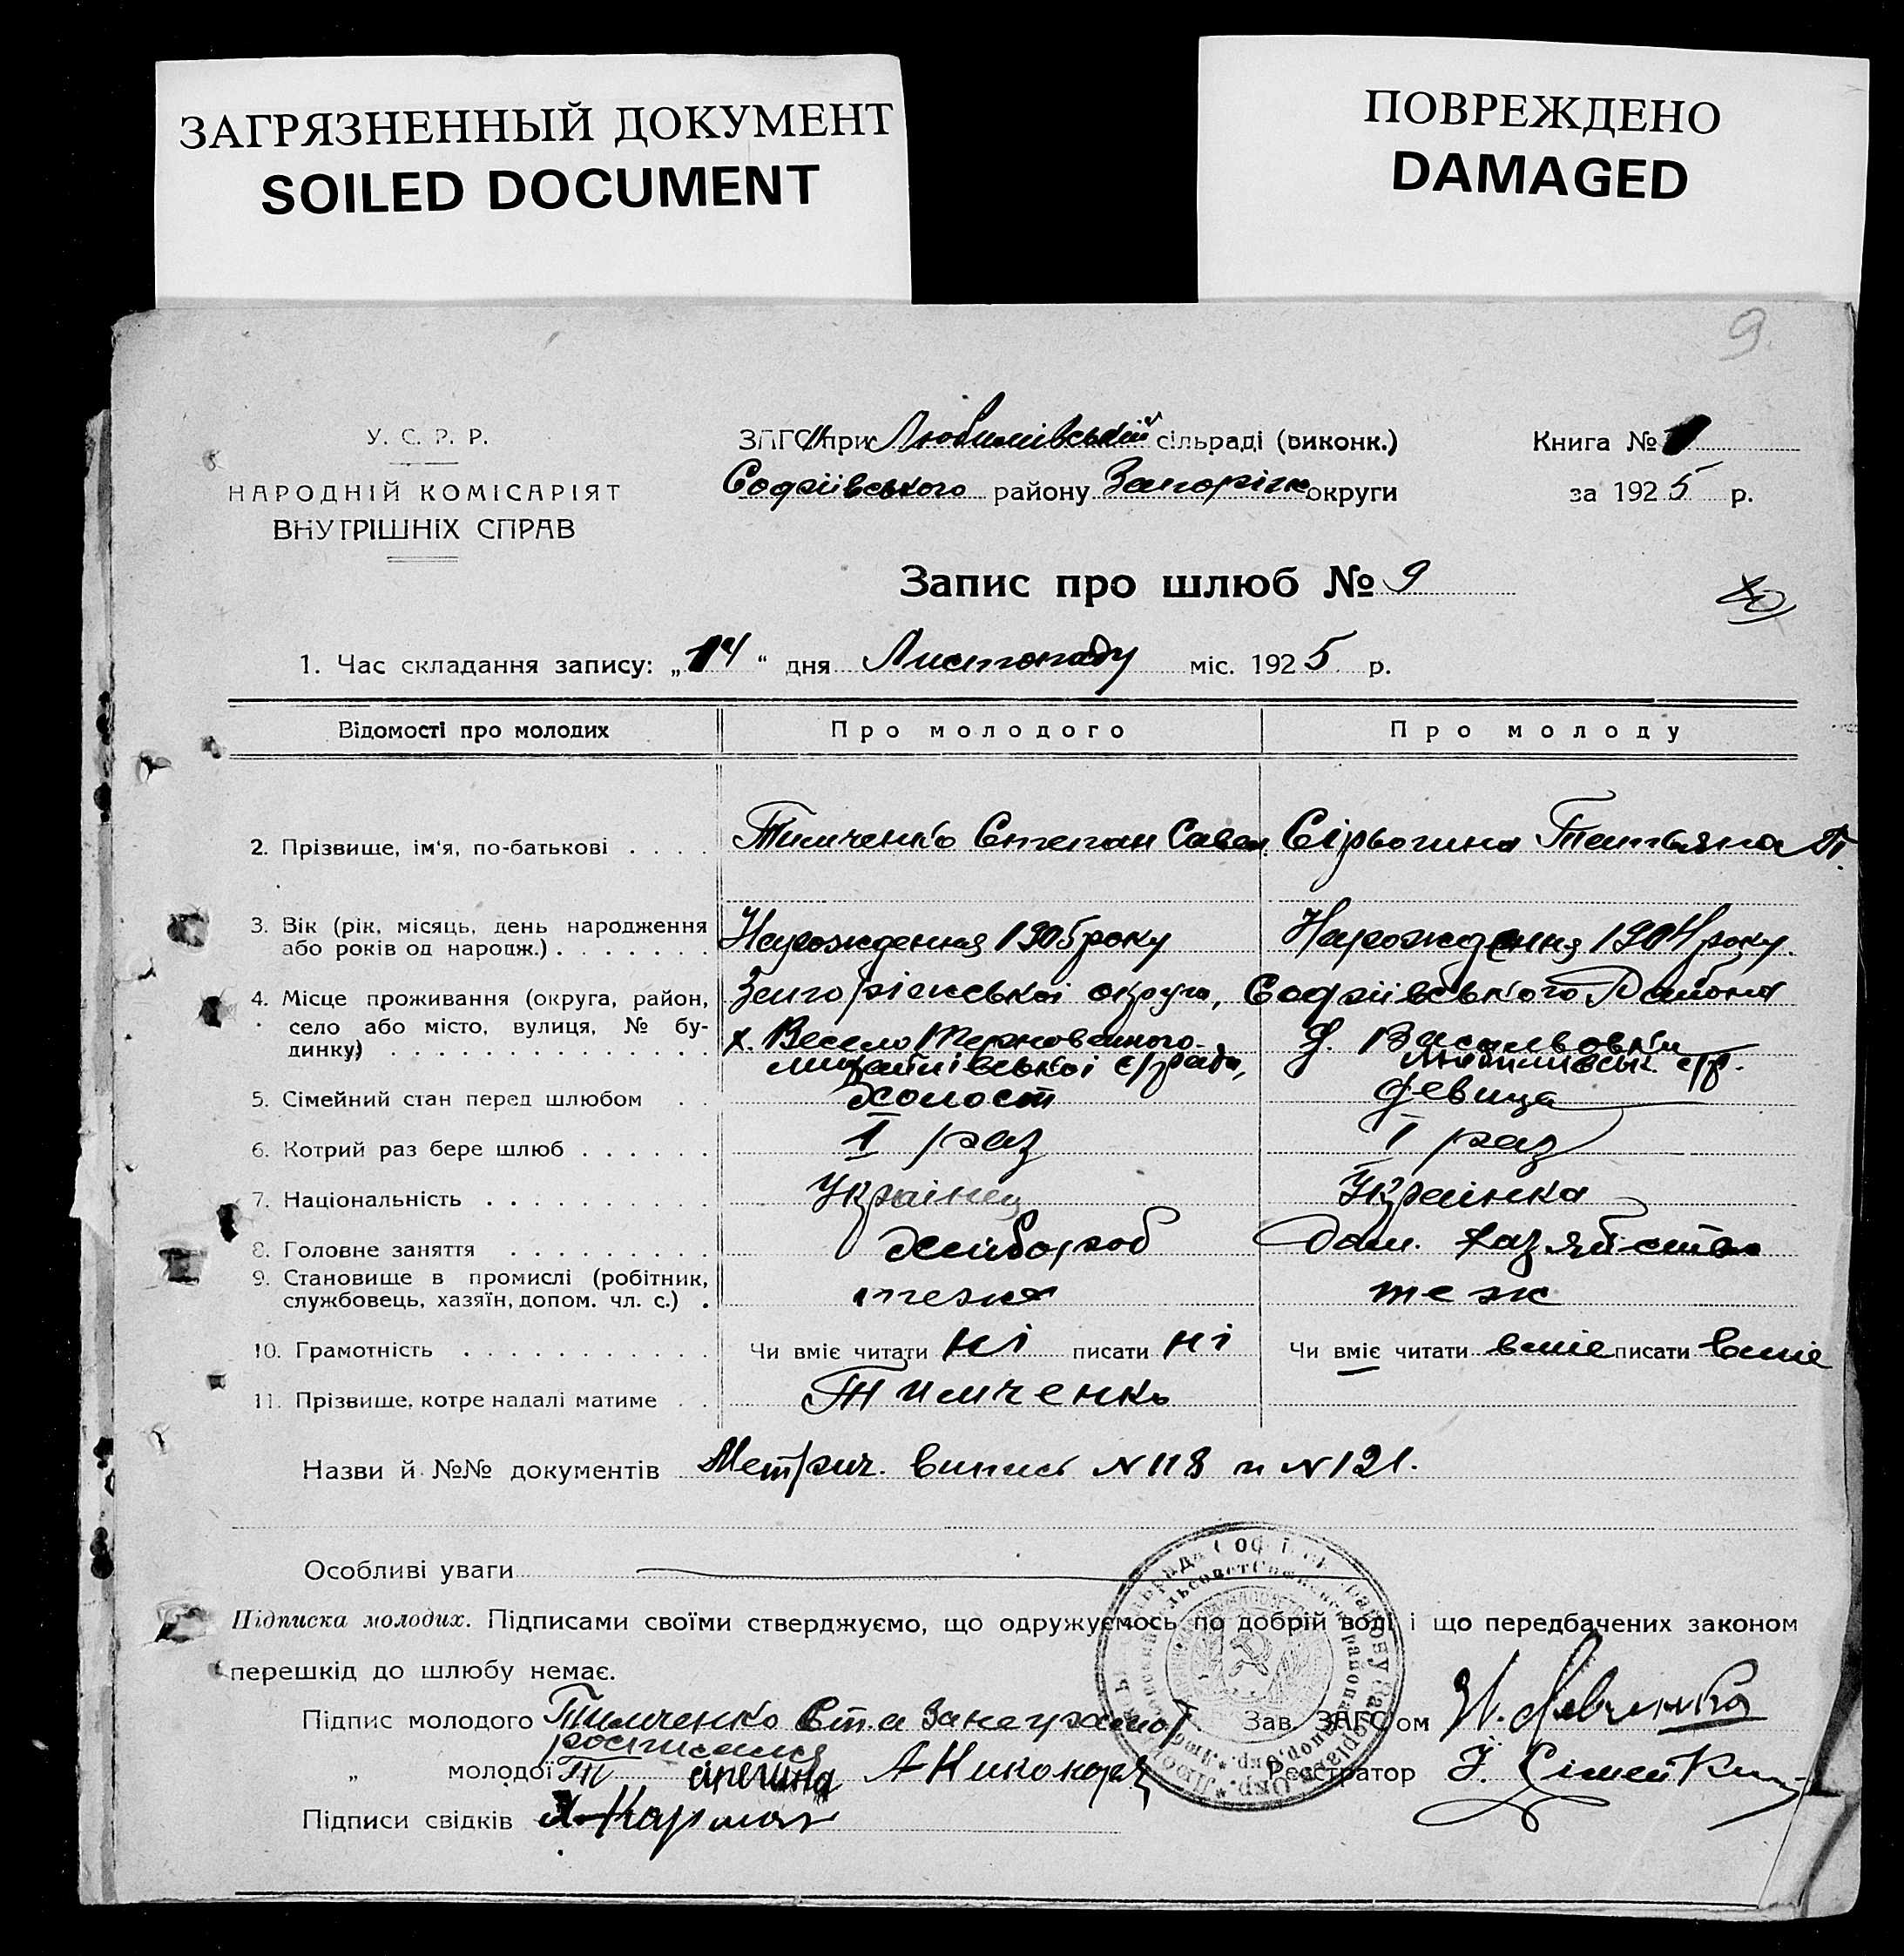 ЗАГРЯЗНЕННЫЙ ДОКУМЕНТ
SOILED DOCUMENT
ПОВРЕЖДЕНО
DAMAGED
9.
У. С. Р. Р.
НАРОДНІЙ КОМІСАРІЯТ
ВНУТРІШНІХ СПРАВ
ЗАГС при Любимівській сільраді (виконк.)
Софіївського району Запоріжк округи
Книга № 1
за 1925 р.
Запис про шлюб № 9
1. Час складання запису: „14" дня Листопаду міс. 1925 р.
Відомості про молодих Про молодого Про молоду
2. Прізвище, ім'я, по-батькові . . . . Тимченко Степан Савел. Сірьогина Татьяна П.
3. Вік (рік, місяць, день народження
або років од народж.) . . . . . . . Нарождения 1905 року Нарождення 1904 року.
4. Місце проживання (округа, район, Запоріжської округи, Софиівського Района
село або місто, вулиця, № бу-
динку) . . . . . . . . . . . . . . х. Весело Терноватого
Михайлівської с/рада, с/р.
5. Сімейний стан перед шлюбом . . Холост девица
6. Котрий раз бере шлюб . . . . . . I раз I раз
7. Національність . . . . . . . . . . Українец Українка
8. Головне заняття . . . . . . . . . Хлібороб Дом. хазяйство
9. Становище в промислі (робітник,
службовець, хазяїн, допом. чл. с.) . теж теж
10. Грамотність . . . . . . . . . . . Чи вміє читати ні писати ні Чи вміє читати вміє писати вміє
11. Прізвище, котре надалі матиме . . Тимченко
Назви й №№ документів Метрич. випись N118 и N121.
Особливі уваги
Підписка молодих. Підписами своїми стверджуємо, що одружуємось по добрій волі і що передбачених законом
перешкід до шлюбу немає.
Підпис молодого Тимченко Ст. а За неграмот Зав. ЗАГС'ом
росписался
„ молодої Реєстратор
Підписи свідків